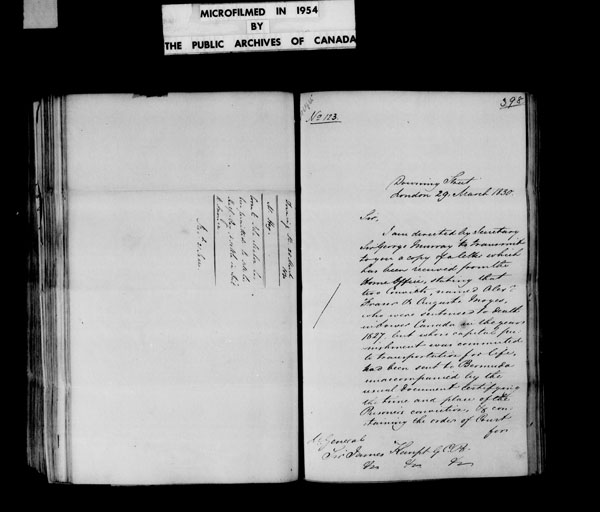 MICROFILMED IN 1954
BY
THE PUBLIC ARCHIVES OF CANADA
398
No 123.
Downing Street
London 29 March 1830.
Sir,
I am directed by Secretary
Sir George Murray to transmit
to you a copy of a letter which
has been received from the
Home Office, stating that
two Convicts, named Alexr
Fraser & Auguste
who were sentenced to death
in Lower Canada in the year
1827 but whose capital pu-
nishment was commuted
to transportation for life,
had been sent to Bermuda
unaccompanied by the
usual Document certifying
the time and place of the
Prisoners conviction, & con-
taining the order of Court
for
Lt General
Sir James Kempt G.C.B.
&c &c &c